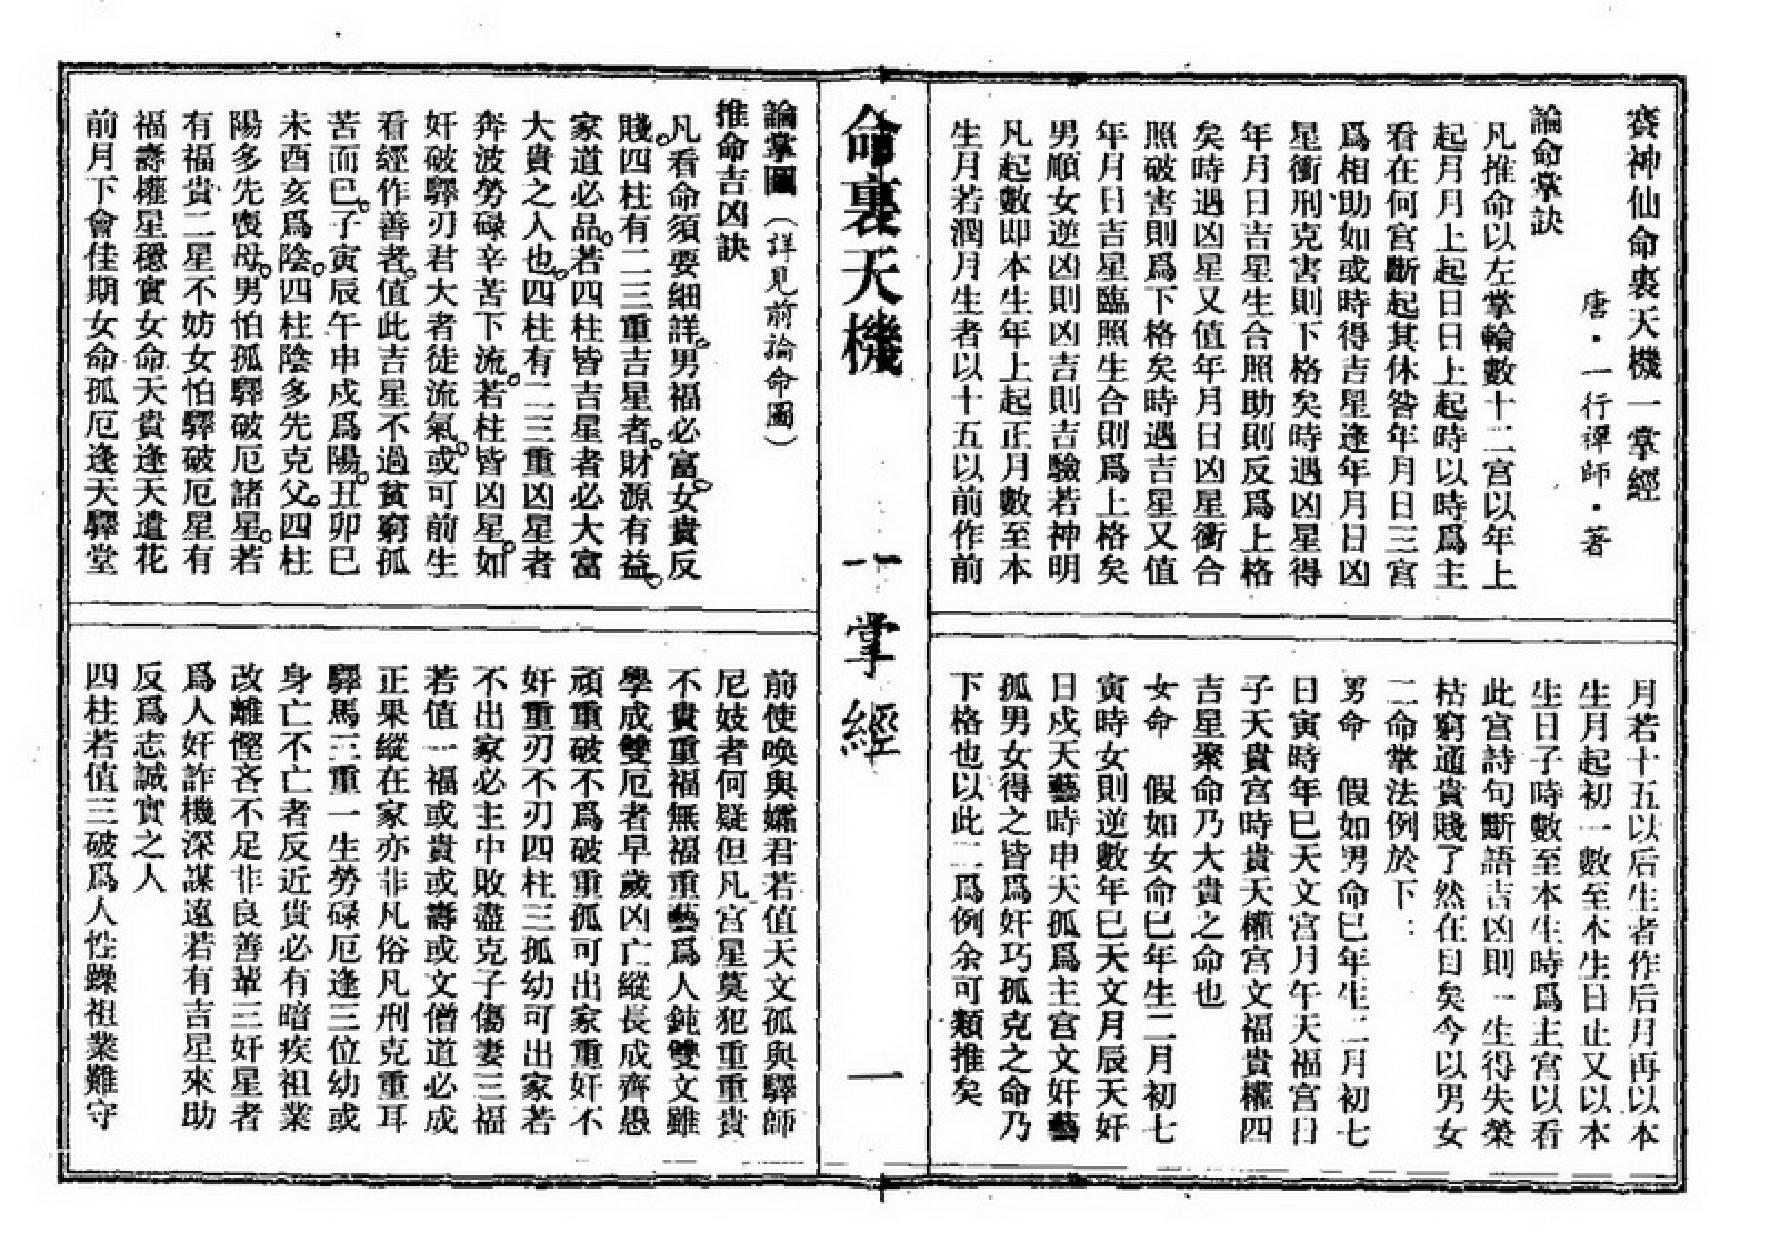 賽神仙命裏天機一掌經
唐・一行禪師・著
論命掌訣
凡推命以左掌輪數十二宮以年上
起月月上起日日上起時以時爲主
看在何宮斷起其休咎年月日三宮
爲相助如或時得吉星逢年月日凶
星衝刑克害則下格矣時遇凶星得
年月日吉星生合照助則反爲上格
矣時遇凶星又值年月日凶星衝合
照破害則爲下格矣時遇吉星又值
年月日吉星臨照生合則爲上格矣
男順女逆凶則凶吉則吉驗若神明
凡起數即本生年上起正月數至本
生月若潤月生者以十五以前作前
月若十五以后生者作后月再以本
生月起初一數至本生日止又以本
生日子時數至本生時爲主宮以看
此宮詩句斷語吉凶則一生得失榮
枯窮通貴賤了然在目矣今以男女
二命掌法例於下：
男命　假如男命巳年生二月初七
日寅時年巳天文宮月午天福宮日
子天貴宮時貴天權宮文福貴權四
吉星聚命乃大貴之命也
女命　假如女命巳年生二月初七
寅時女則逆數年巳天文月辰天奸
日戌天藝時申天孤爲主宮文奸藝
孤男女得之皆爲奸巧孤克之命乃
下格也以此二爲例余可類推矣
命裏天機　一掌經　一
論掌圖（詳見前掄命圖）
推命吉凶訣
凡看命須要細詳。男福必富女貴反
賤。四柱有二三重吉星者。財源有益。
家道必品。若四柱皆吉星者必大富
大貴之人也。四柱有二三重凶星者
奔波勞碌辛苦下流。若柱皆凶星。如
奸破驛刃君大者徒流氣。或可前生
看經作善者。值此吉星不過貧窮孤
苦而已。子寅辰午申戌爲陽。丑卯巳
未酉亥爲陰。四柱陰多先克父。四柱
陽多先喪母。男怕孤驛破厄諸星。若
有福貴二星不妨女怕驛破厄星有
福壽權星穩實女命天貴逢天遣花
前月下會佳期女命孤厄逢天驛堂
前使喚與孀君若值天文孤與驛師
尼妓者何疑但凡宮星莫犯重重貴
不貴重福無福重藝爲人鈍雙文雖
學成雙厄者早歲凶亡縱長成齊愚
頑重破不爲破重孤可出家重奸不
奸重刃不刃四柱三孤幼可出家若
不出家必主中敗盡克子傷妻三福
若值一福或貴或壽或文僧道必成
正果縱在家亦非凡俗凡刑克重耳
驛馬三重一生勞碌厄逢三位幼或
身亡不亡者反近贵必有暗疾祖業
改離慳吝不足非良善輩三奸星者
爲人奸詐機深謀遠若有吉星來助
反爲志誠實之人
四柱若值三破爲人性躁祖業難守